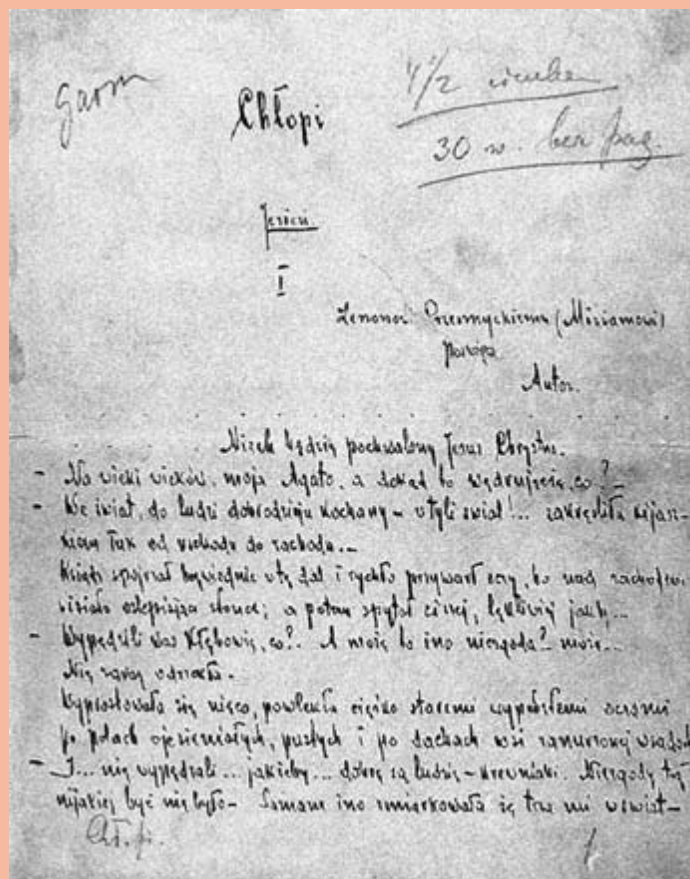 Chłopi
Jesień
I
Zenonowi Przesmyckiemu (Miriamowi)
Autor.
Niech będzie pochwalony Jezus Chrystus.
- Na wieki wieków, moja Agato, a dokąd to wędrujecie, co? -
- We świat, do ludzi dobrodzieju kochany - w tyli świat!... zakręciła kijasz-
kiem łuk od wschodu do zachodu. -
Ksiądz spojrzał bezwiednie w tę dal i rychło przywarł oczy, bo nad zachodem
wisiało oślepiające słońce; a potem spytał ciszej, lękliwiej jakby...
- Wypędzili was Kłębowie, co?. A może to ino niezgoda? może...
Nie zaraz odrzekła.
Wyprostowała się nieco, powlekła ciężko staremi wypełzłemi oczami
po polach ojesieniałych, pustych i po dachach wsi zanurzonej w sadach
- I... nie wypędzali... jakżeby... dobre są ludzie - krewniaki. Niezgody też
nijakiej być nie było - Samam ino zmiarkowała że trza mi w świat -